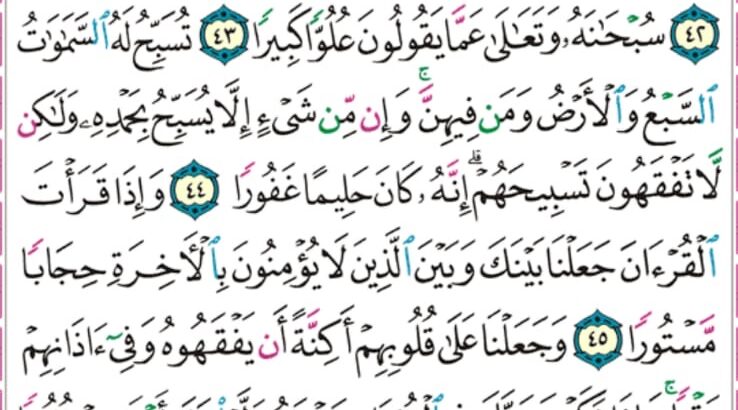 ٤٢ سُبْحَـٰنَهُۥ وَتَعَـٰلَىٰ عَمَّا يَقُولُونَ عُلُوًّا كَبِيرًا ٤٣ تُسَبِّحُ لَهُ ٱلسَّمَـٰوَٰتُ
ٱلسَّبْعُ وَٱلْأَرْضُ وَمَن فِيهِنَّ ۚ وَإِن مِّن شَىْءٍ إِلَّا يُسَبِّحُ بِحَمْدِهِۦ وَلَـٰكِن
لَّا تَفْقَهُونَ تَسْبِيحَهُمْ ۗ إِنَّهُۥ كَانَ حَلِيمًا غَفُورًا ٤٤ وَإِذَا قَرَأْتَ
ٱلْقُرْءَانَ جَعَلْنَا بَيْنَكَ وَبَيْنَ ٱلَّذِينَ لَا يُؤْمِنُونَ بِٱلْـَٔاخِرَةِ حِجَابًا
مَّسْتُورًا ٤٥ وَجَعَلْنَا عَلَىٰ قُلُوبِهِمْ أَكِنَّةً أَن يَفْقَهُوهُ وَفِىٓ ءَاذَانِهِمْ